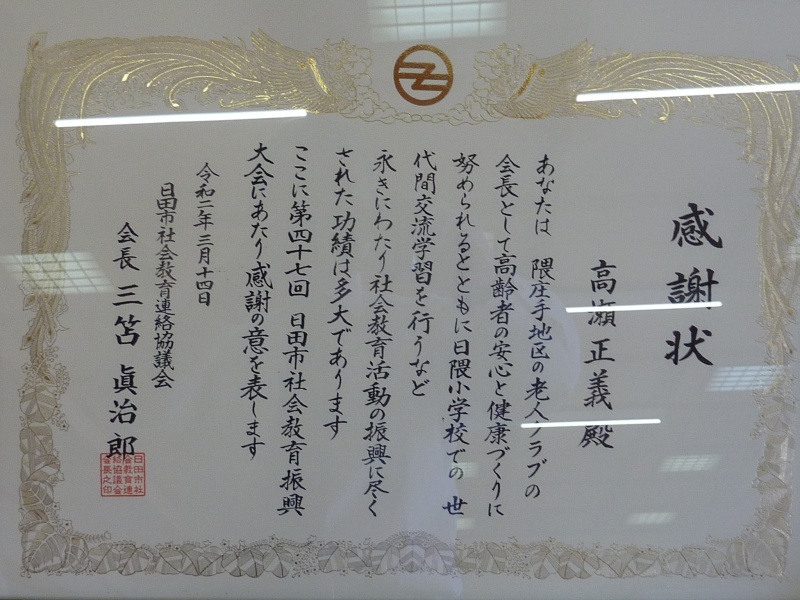 感謝状
高瀬正義殿
あなたは 隈庄手地区の老人クラブの
会長として高齢者の安心と健康づくりに
努められるとともに日隈小学校での 世
代間交流学習を行うなど
永きにわたり社会教育活動の振興に尽く
された功績は多大であります
ここに第四十七回 日田市社会教育振興
大会にあたり感謝の意を表します
令和二年三月十四日
日田市社会教育連絡協議会
会長 三笘 眞治郎
日田市社
会教育連
絡協議会
会長之印